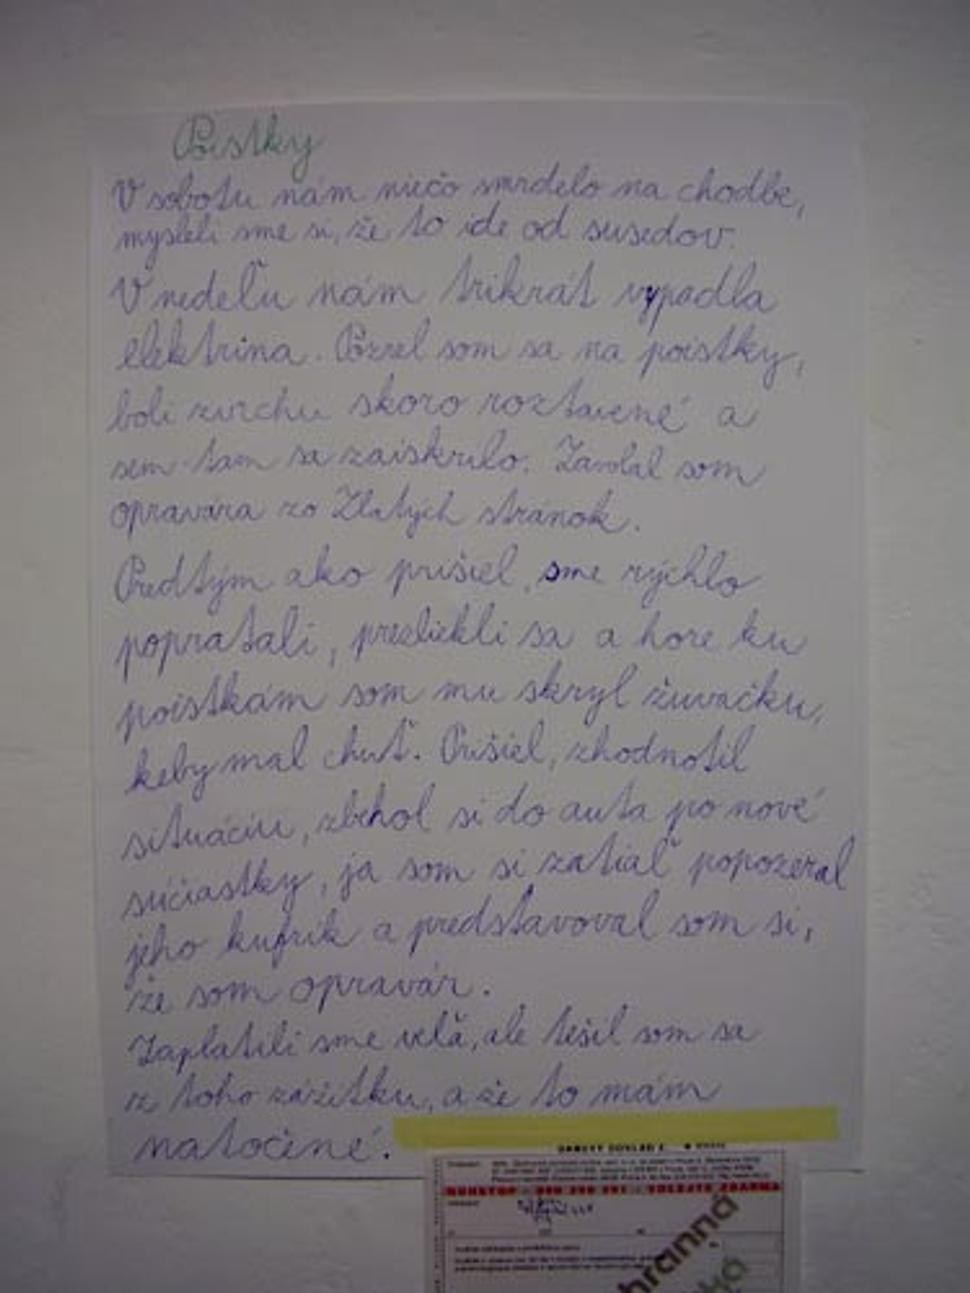 Poistky
V sobotu nám niečo smrdelo na chodbe,
mysleli sme si, že to ide od susedov.
V nedeľu nám trikrát vypadla
elektrina. Pozrel som sa na poistky,
boli zvrchu skoro roztavené a
sem-tam sa zaiskrilo. Zavolal som
opravára zo Zlatých stránok.
Predtým ako prišiel, sme rýchlo
popratali, prezliekli sa a hore ku
poistkám som mu skryl žuvačku,
keby mal chuť. Prišiel, zhodnotil
situáciu, zbehol si do auta po nové
súčiastky, ja som si zatiaľ popozeral
jeho kufrík a predstavoval som si,
že som opravár.
Zaplatili sme veľa, ale tešil som sa
z toho zážitku, a že to mám
natočené.
DAŇOVÝ DOKLAD
NONSTOP - VOLEJTE ZDARMA
hranná